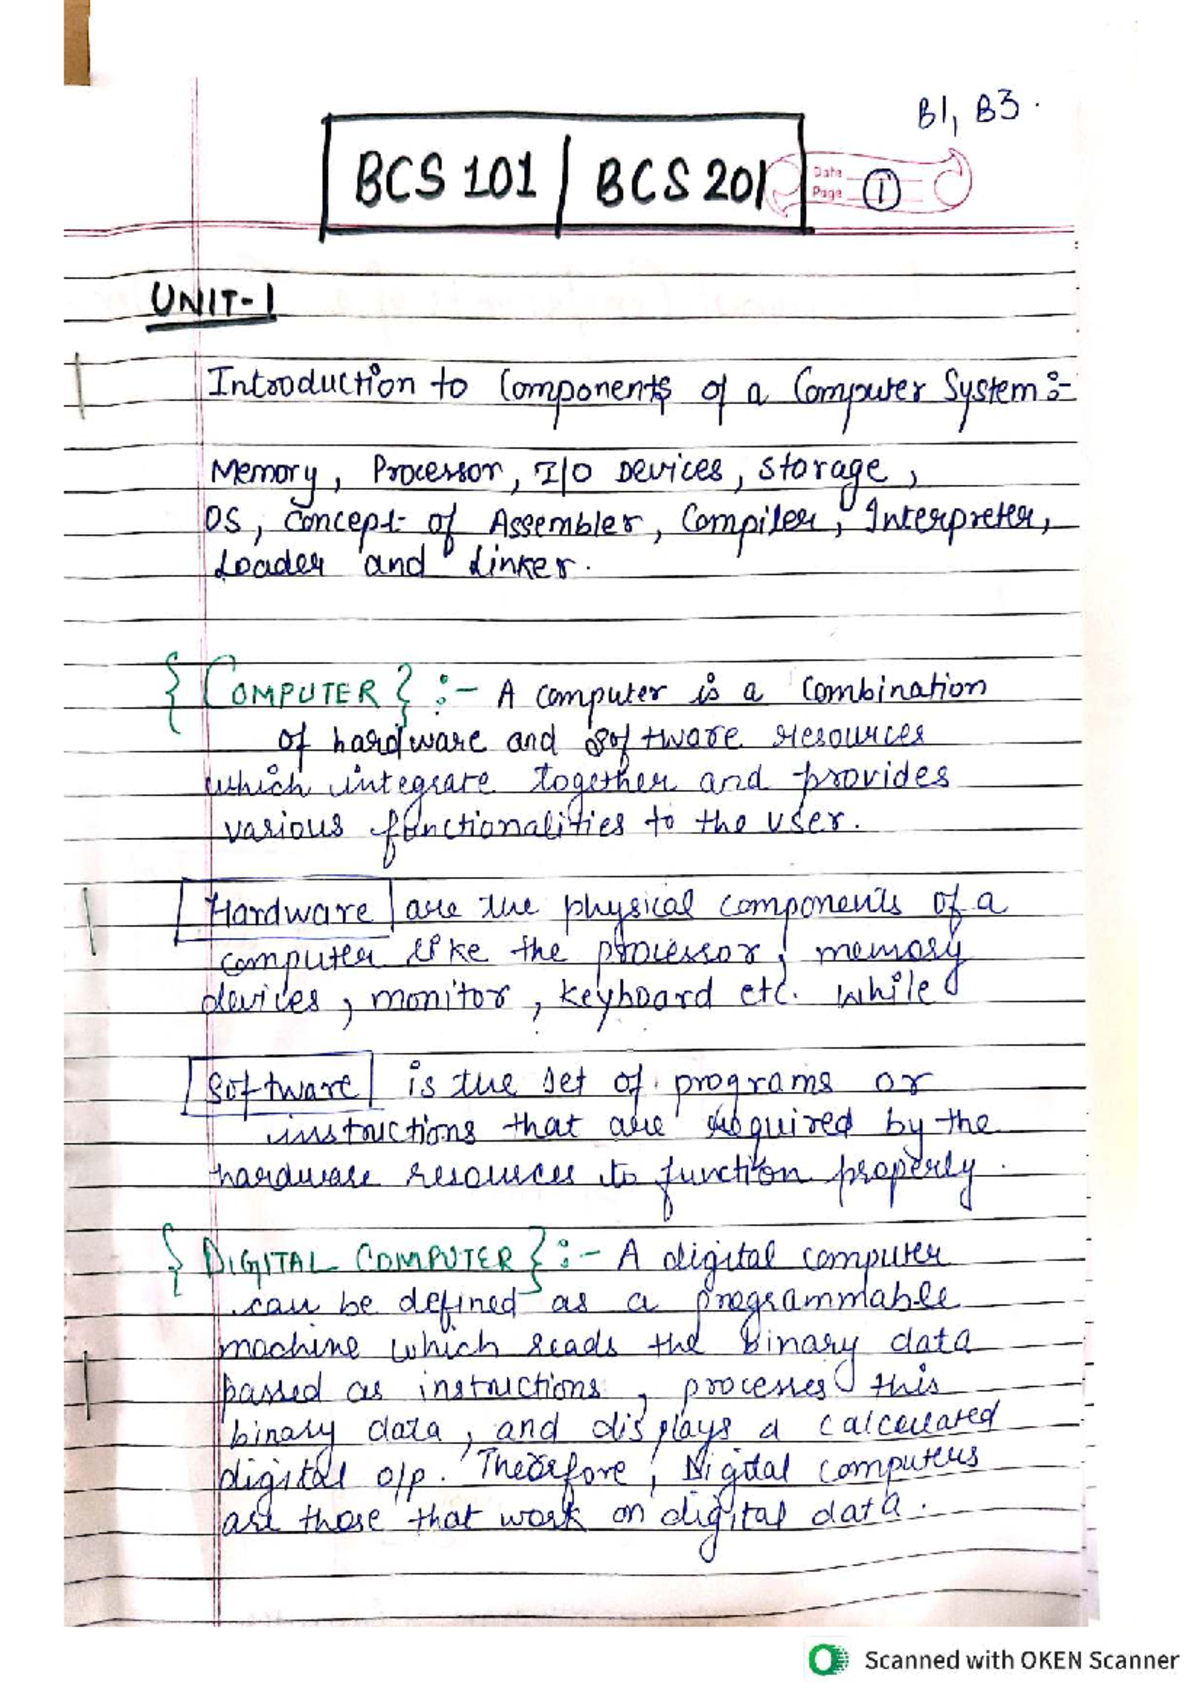 B1, B3.
BCS 101 | BCS 201
Date
Page 1
UNIT-1
Introduction to Components of a Computer System :-
Memory, Processor, I/O Devices, Storage,
OS, Concept of Assembler, Compiler, Interpreter,
Loader and Linker.
{COMPUTER} :- A computer is a combination
of hardware and software resources
which integrate together and provides
various functionalities to the user.
Hardware are the physical components of a
computer like the processor, memory
devices, monitor, keyboard etc. while
Software is the set of programs or
instructions that are required by the
hardware resources to function properly.
{DIGITAL COMPUTER} :- A digital computer
can be defined as a programmable
machine which reads the binary data
passed as instructions, processes this
binary data, and displays a calculated
digital o/p. Therefore, Digital computers
are those that work on digital data.
Scanned with OKEN Scanner